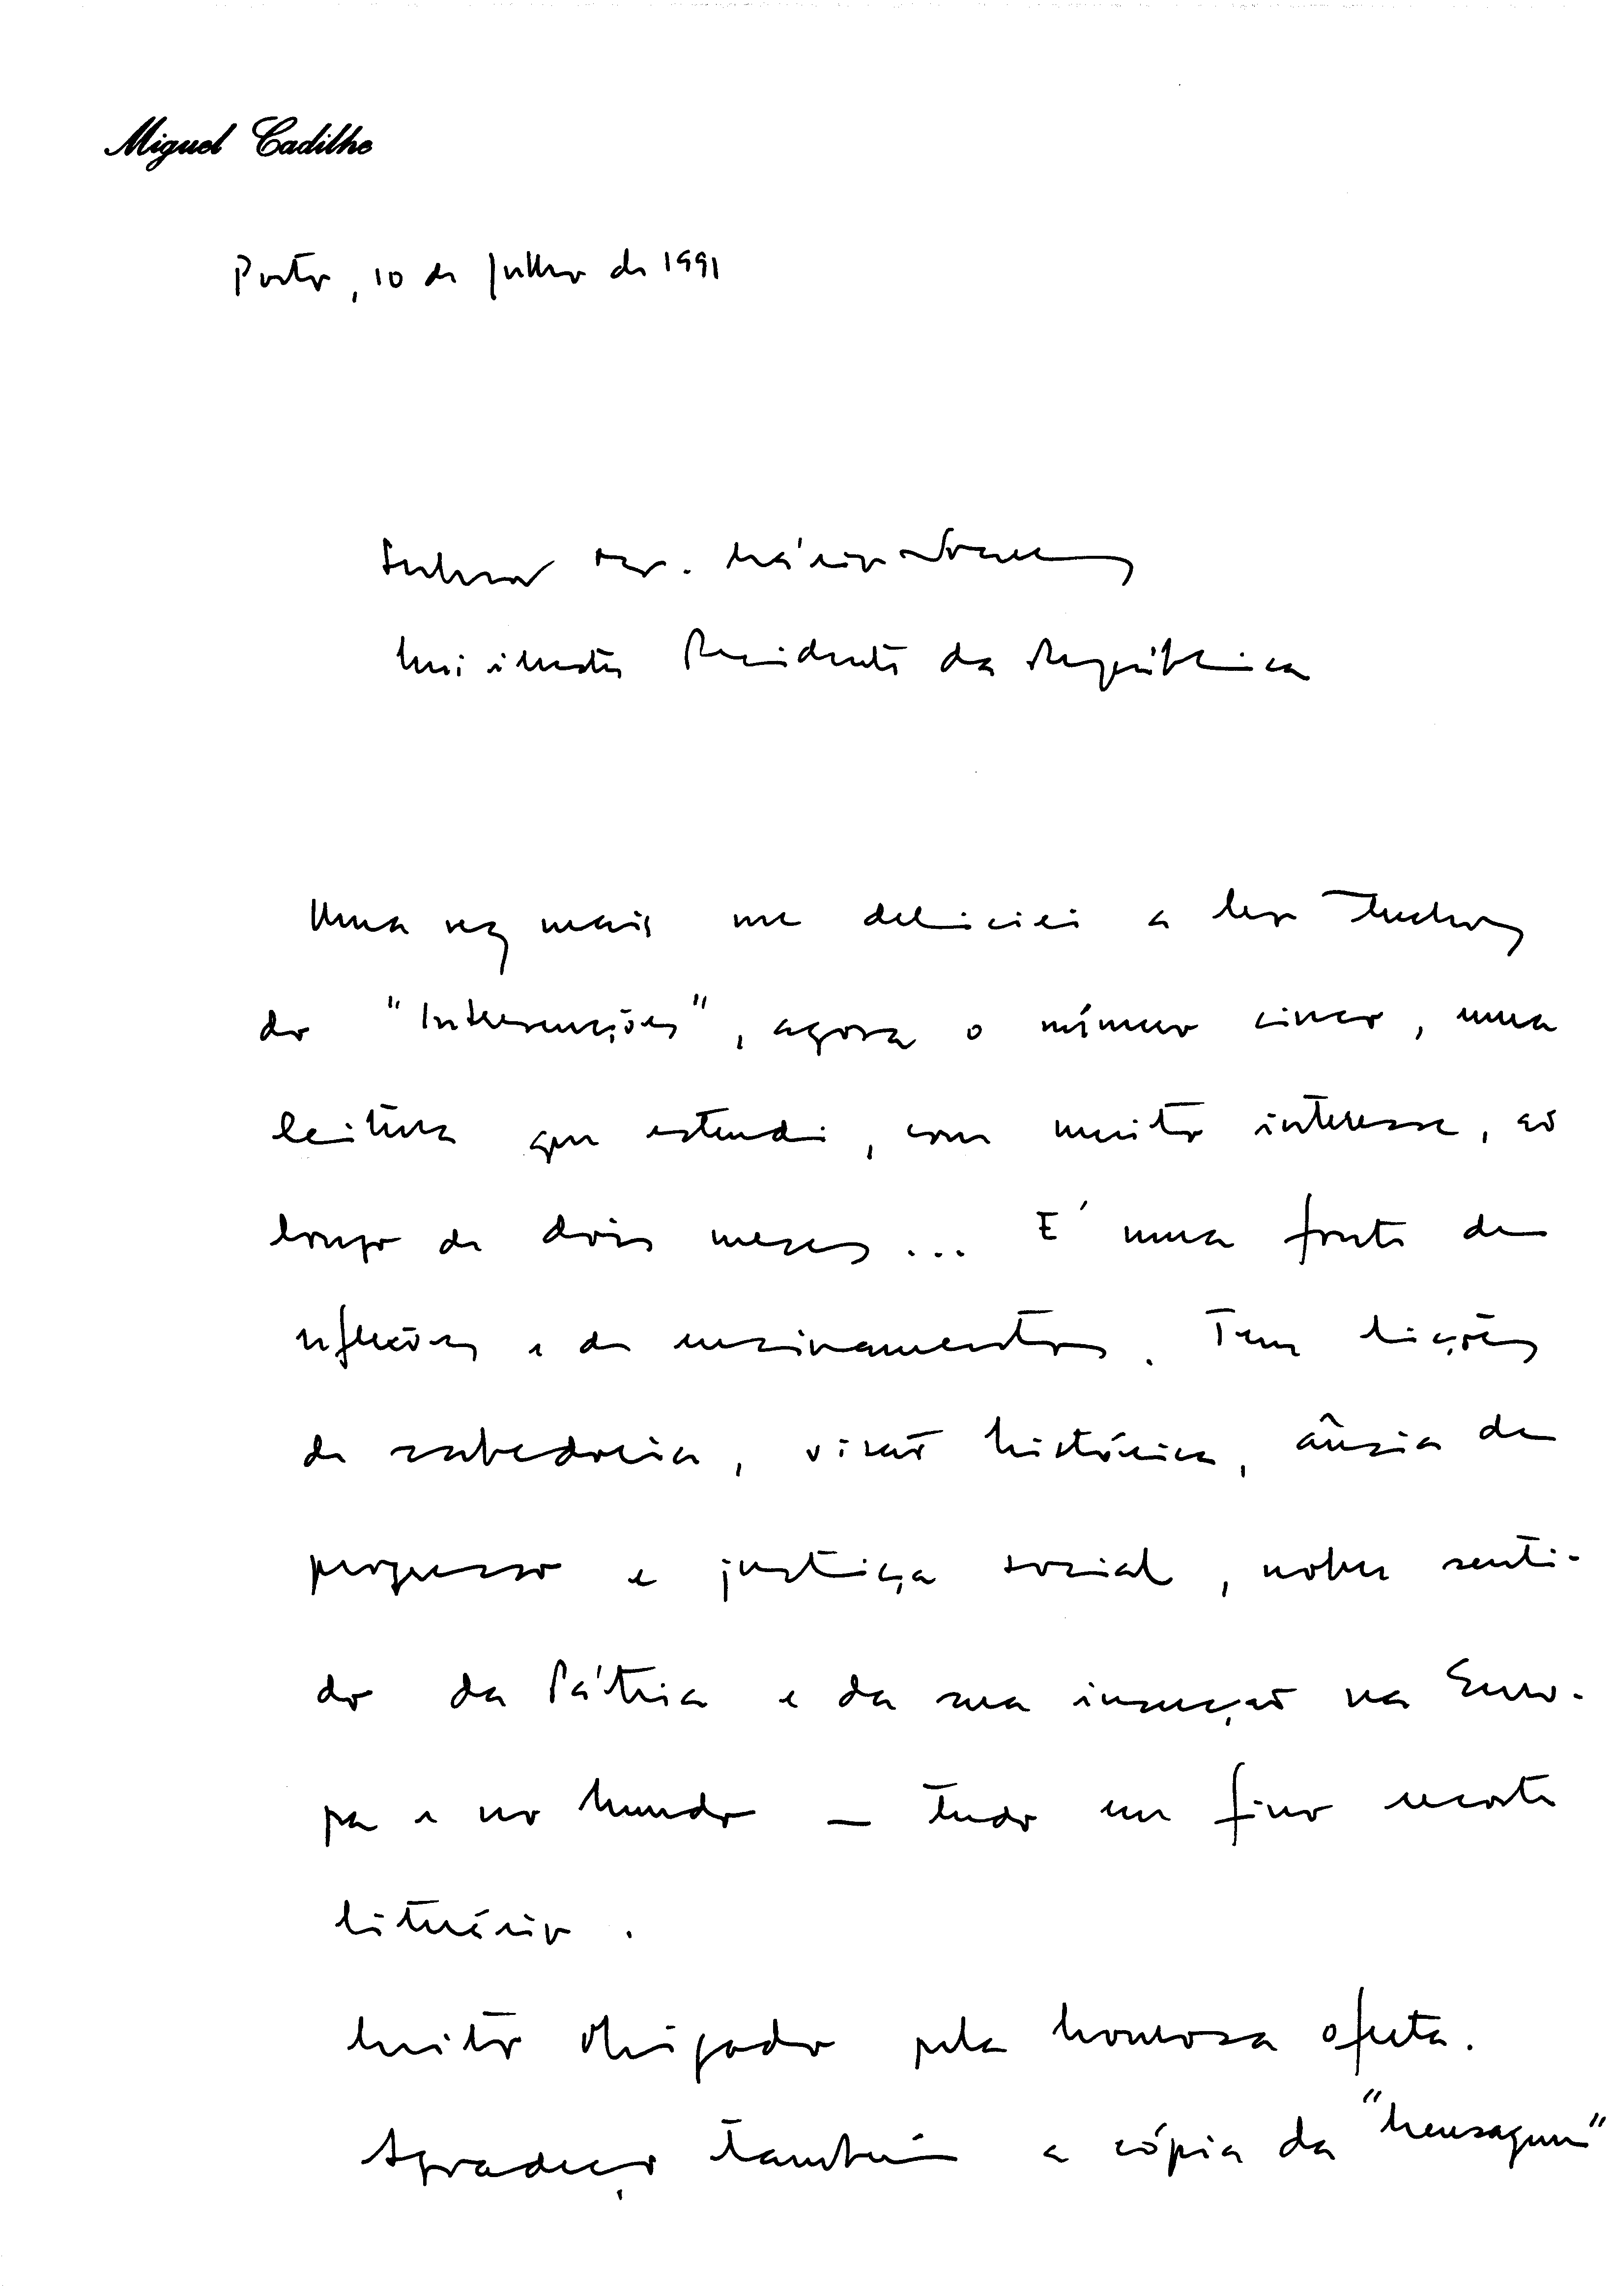 Miguel Cadilhe
Porto, 10 de Julho de 1991
Senhor Dr. Mário Soares
Mui ilustre Presidente da República
Uma vez mais me deliciei a ler trechos
do "Intervenções", agora o número cinco, uma
leitura que estendi, com muito interesse, ao
longo de dois meses... É uma fonte de
reflexões e de ensinamentos. Tem lições
de sabedoria, visão histórica, ânsia de
progresso e justiça social, nobre senti-
do da Pátria e da sua inserção na Euro-
pa e no Mundo — tudo em fino recorte
literário.
Muito obrigado pela honrosa oferta.
Agradeço também a cópia da "Mensagem"